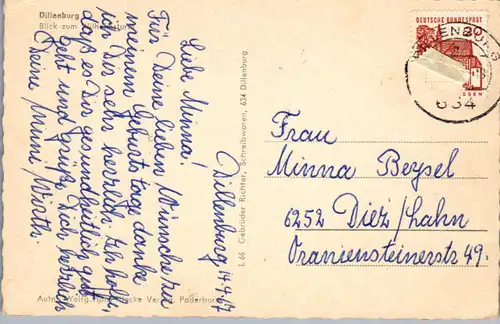 Dillenburg
Blick zum Wilhelmsturm
Dillenburg 14.4.67
Liebe Minna!
Für Deine lieben Wünsche zu
meinem Geburtstage danke
ich Dir sehr herzlich. Ich hoffe,
daß es Dir gesundheitlich gut
geht und grüße Dich herzlich
Deine Mimi Wirth.
Aufn.: Wolfg. Verlag, Paderborn
L 66 Gebrüder Richter, Schreibwaren, 634 Dillenburg
DEUTSCHE BUNDESPOST
DILLENBURG
634
Frau
Minna Beysel
6252 Diez/Lahn
Oraniensteinerstr 49.